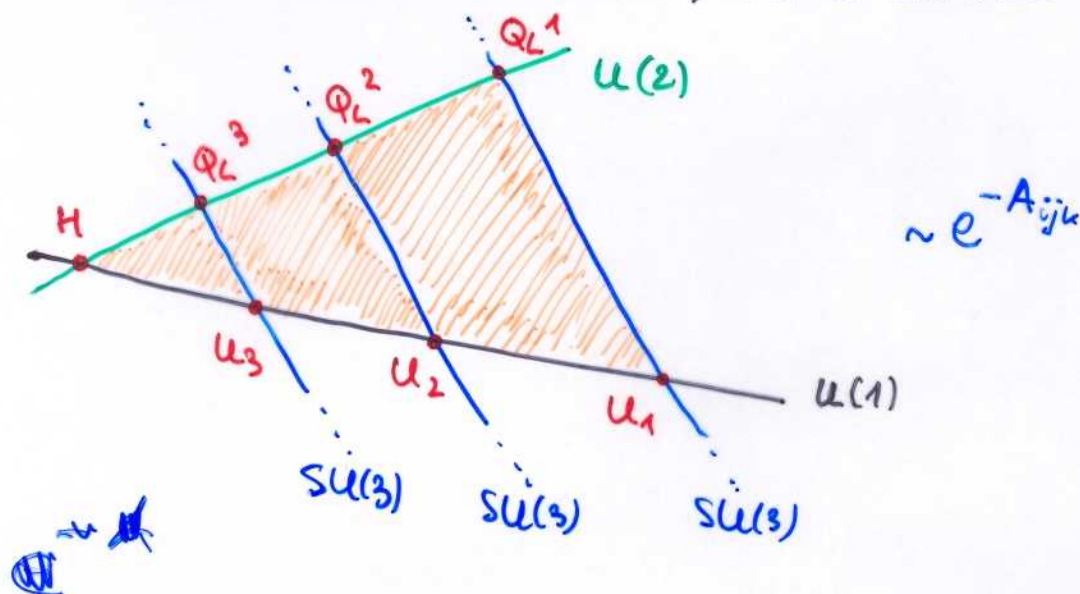 Q_L^1
U(2)
Q_L^2
Q_L^3
H
~ e^{-A_{ijk}}
U_3
U_2
U_1
U(1)
SU(3)
SU(3)
SU(3)